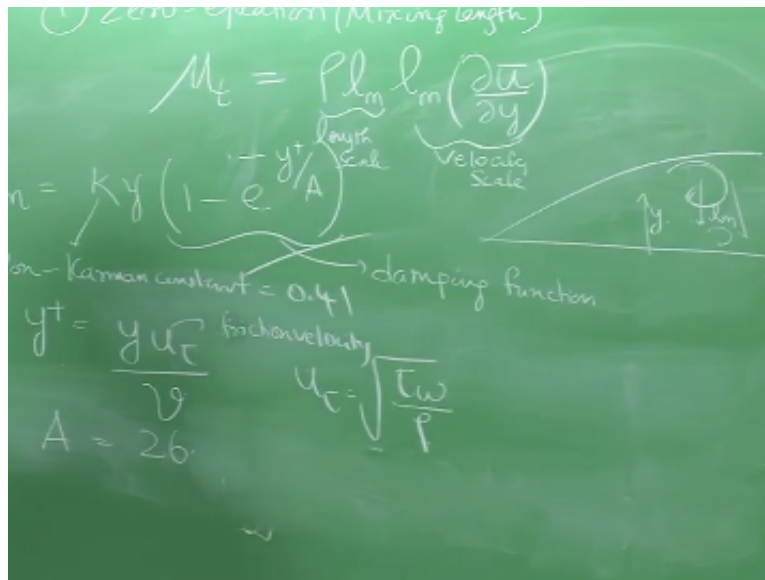 ① Zero-equation (Mixing length)
μₜ = ρ lₘ lₘ (∂ū/∂y)
length scale
velocity scale
m = Ky (1 - e^(-y⁺/A))
y. lₘ
on-Karman constant = 0.41
damping function
y⁺ = y u_τ / ν
friction velocity
u_τ = √(τω/ρ)
A = 26.